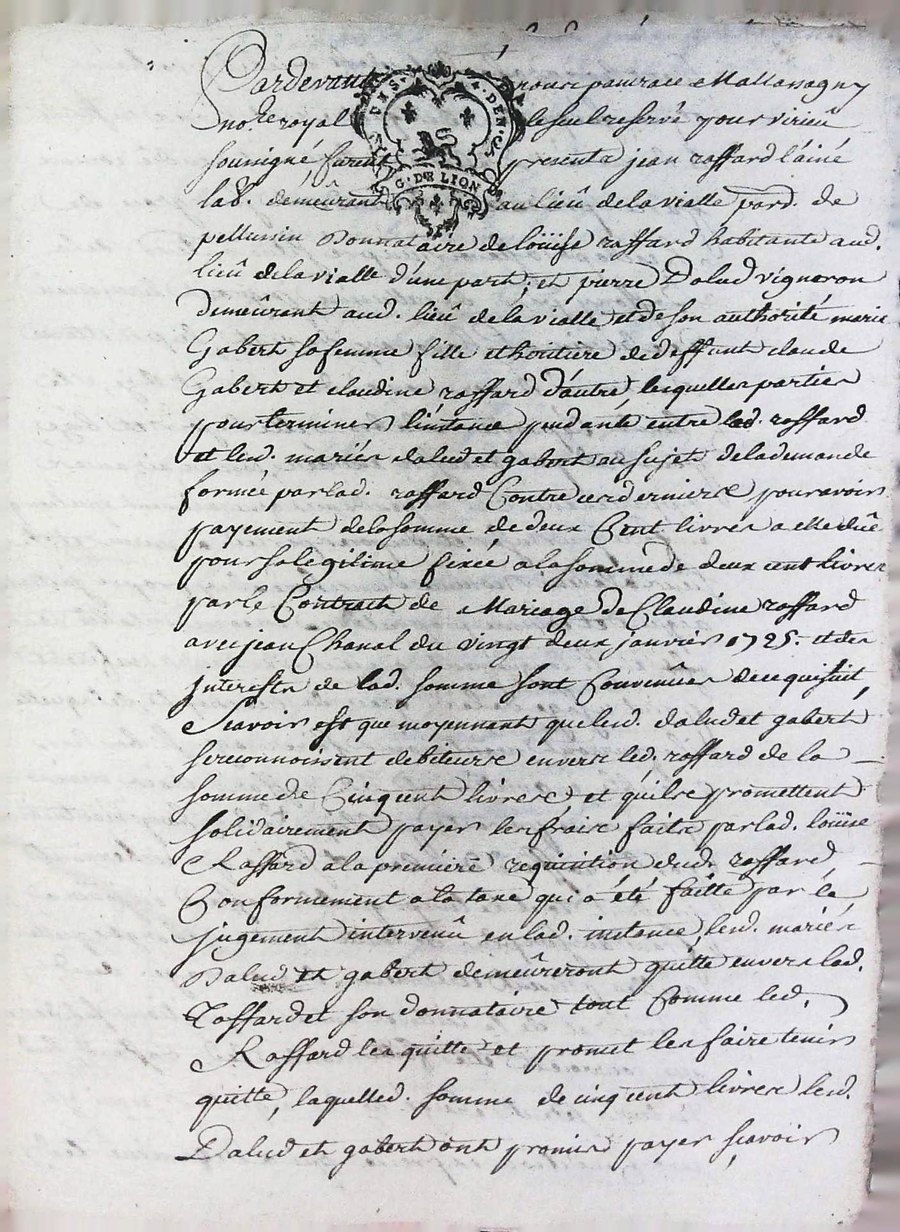 Pardevant nous pancrace Mallassagny
no.re royal le seul reservé pour virieû
sousigné, furent presents jean raffard l'ainé
lab.r demeûrant au lieû de la vialle par.d de
pellussin Donnataire de loüise raffard habitante aud.
lieû de la vialle d'une part; et pierre Dalud vigneron
Demeûrant aud. lieû de la vialle et de son authorité marie
Gabert sa femme fille et heritiere de deffunt claude
Gabert et claudine raffard d'autre, lesquelles parties
pour terminer l'instance pendante entre lad. raffard
et lesd. mariés dalud et gabert au sujet de la demande
formée par lad. raffard Contre ces derniers pour avoir
payement de la somme de deux Cent livres a elle dûe
pour sa legitime fixée a la somme de deux cent livres
par le Contrait de Mariage de Claudine raffard
avec jean Chanal du vingt deux janvier 1725. et des
jnterests de lad. somme sont Convenües de ce qui suit,
Scavoir est que moyennant que lesd. dalud et gabert
se reconnoissent debiteurs envers led. raffard de la
somme de Cinq cent livres et qu'ils promettent
solidairement payer les frais faits par lad. loüise
Raffard a la premiere requisition dud. raffard
Conformement a la taxe qui a été faitte par le
jugement intervenû en lad. instance, lesd. mariés
Dalud et gabert demeûreront quitte envers lad.
Raffard et son donnataire tout Comme led.
Raffard les quitte et promet les faire tenir
quitte, laquelled. somme de cinq cent livres lesd.
Dalud et gabert ont promis payer sçavoir
G. DE LION